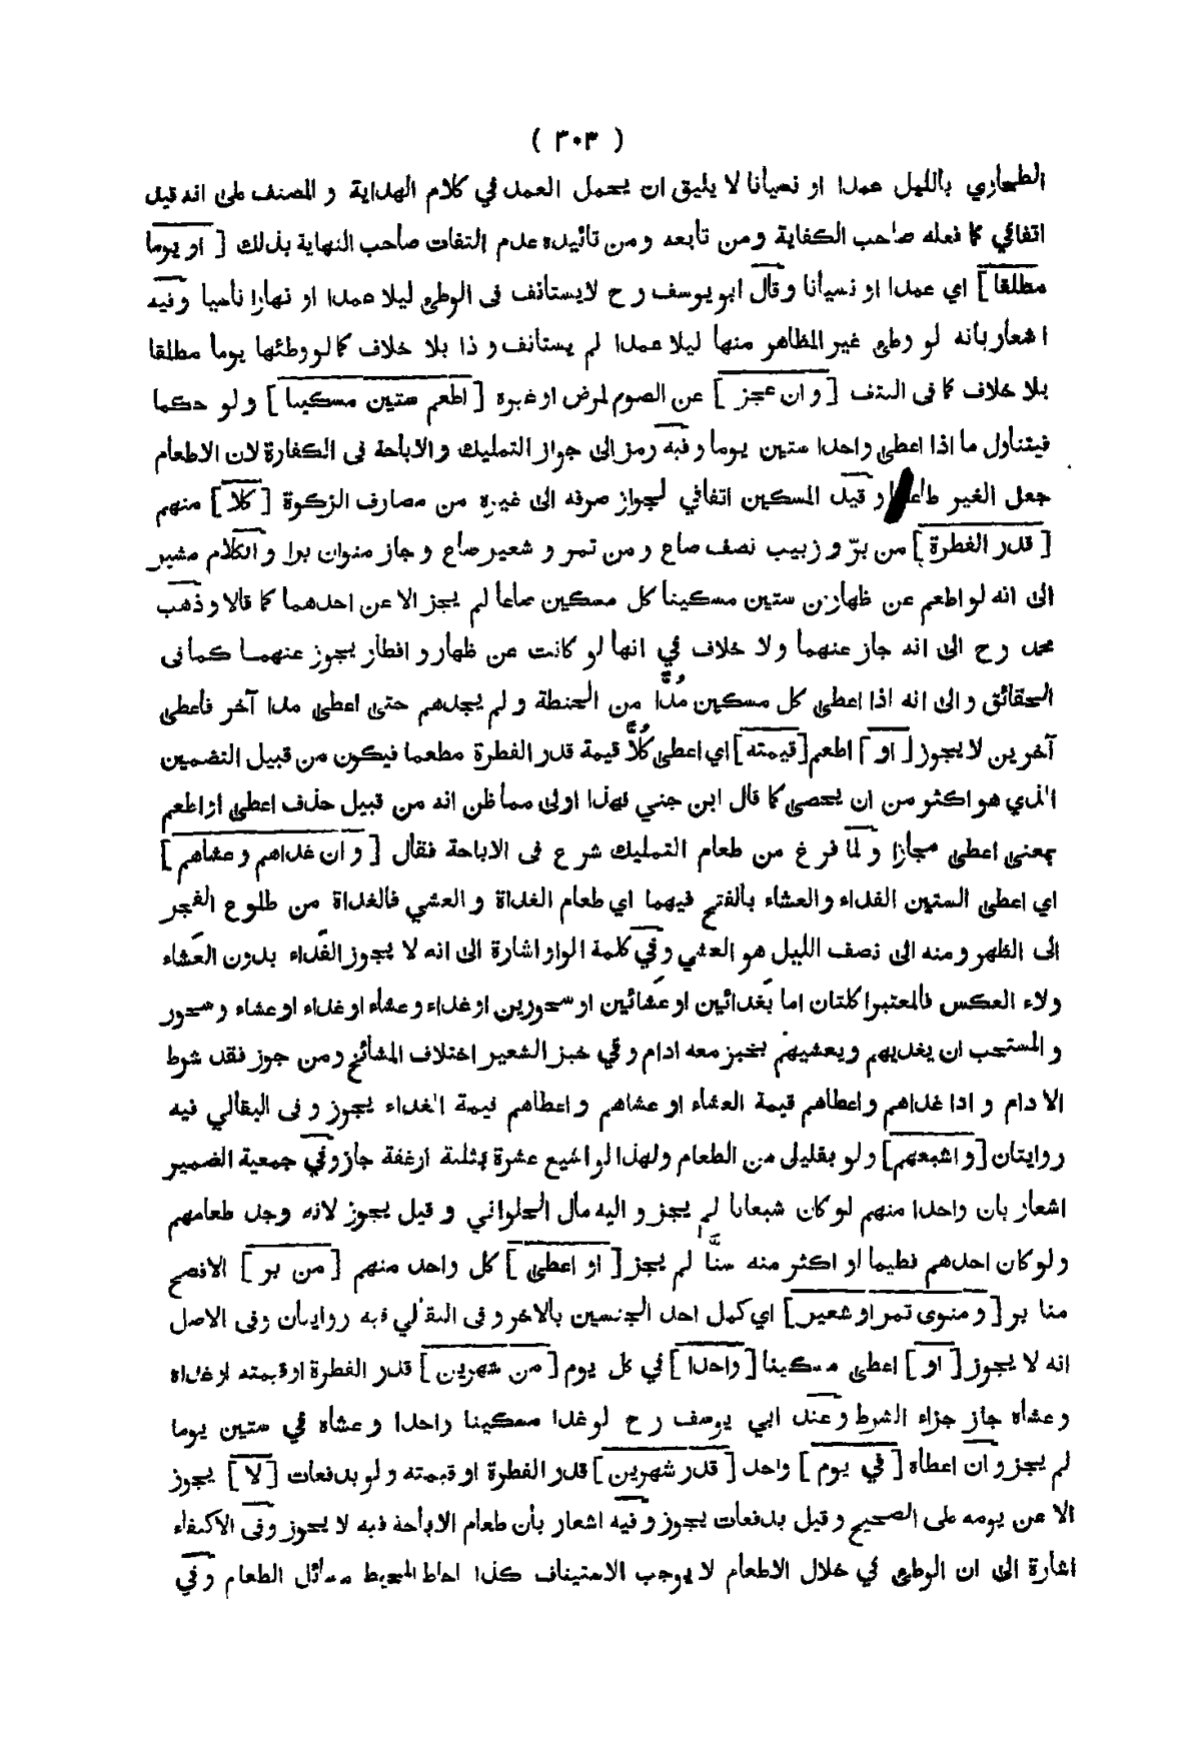 ( ٣٠٣ )
الطحاوي بالليل عمدا او نسيانا لا يليق ان يحمل العمد في كلام الهداية و المصنف على انه قيد
اتفاقي كما فعله صاحب الكفاية ومن تابعه ومن تائيده عدم التفات صاحب النهاية بذلك [ او يوما
مطلقا ] اي عمدا او نسيانا وقال ابو يوسف رح لا يستانف فى الوطى ليلا عمدا او نهارا ناسيا وفيه
اشعار بانه لو وطى غير المظاهر منها ليلا عمدا لم يستانف و ذا بلا خلاف كما لو وطئها يوما مطلقا
بلا خلاف كما فى النتف [ و ان عجز ] عن الصوم لمرض او غيره [ اطعم ستين مسكينا ] و لو حكما
فيتناول ما اذا اعطى واحدا ستين يوما وفيه رمز الى جواز التمليك و الاباحة فى الكفارة لان الاطعام
جعل الغير طاعما و قيد المسكين اتفاقي لجواز صرفه الى غيره من مصارف الزكوة [ كلا ] منهم
[ قدر الفطرة ] من برّ و زبيب نصف صاع ومن تمر و شعير صاع و جاز منوان برا و الكلام مشير
الى انه لو اطعم عن ظهارين ستين مسكينا كل مسكين صاعا لم يجز الا عن احدهما كما قالا وذهب
محمد رح الى انه جاز عنهما ولا خلاف في انها لو كانت عن ظهار و افطار يجوز عنهما كما فى
الحقائق و الى انه اذا اعطى كل مسكين مُدّا من الحنطة و لم يجدهم حتى اعطى مدا آخر فاعطى
آخرين لا يجوز [ او ] اطعم [ قيمته ] اي اعطى كُلّا قيمة قدر الفطرة مطعما فيكون من قبيل التضمين
الذي هو اكثر من ان يحصى كما قال ابن جني فهذا اولى مما ظن انه من قبيل حذف اعطى او اطعم
بمعنى اعطى مجازا و لما فرغ من طعام التمليك شرع فى الاباحة فقال [ و ان غداهم و عشاهم ]
اي اعطى الستين الغداء و العشاء بالفتح فيهما اي طعام الغداة و العشي فالغداة من طلوع الفجر
الى الظهر و منه الى نصف الليل هو العشي وفي كلمة الواو اشارة الى انه لا يجوز الغَداء بدون العَشاء
ولاء العكس فالمعتبر اكلتان اما بغَدائين او عَشائين او سحورين او غداء و عشاء او غداء او عشاء و سحور
و المستحب ان يغديهم و يعشيهم بخبز معه ادام و في خبز الشعير اختلاف المشائخ ومن جوز فقد شرط
الادام و اذا غداهم و اعطاهم قيمة العشاء او عشاهم و اعطاهم قيمة الغداء يجوز و فى البقالي فيه
روايتان [ و اشبعهم ] و لو بقليل من الطعام ولهذا لو اشبع عشرة بثلثة ارغفة جاز وفي جمعية الضمير
اشعار بان واحدا منهم لو كان شبعانا لم يجز و اليه مال الحلواني و قيل يجوز لانه وجد طعامهم
و لو كان احدهم فطيما او اكثر منه سنّا لم يجز [ او اعطى ] كل واحد منهم [ من بر ] الافصح
منا بر [ و منوى تمر او شعير ] اي كمل احد الجنسين بالاخر و فى البقالي فيه روايتان وفى الاصل
انه لا يجوز [ او ] اعطى مسكينا [ واحدا ] في كل يوم [ من شهرين ] قدر الفطرة او قيمته او غداه
و عشاه جاز جزاء الشرط وعند ابي يوسف رح لو غدا مسكينا واحدا و عشاه في ستين يوما
لم يجز و ان اعطاه [ في يوم ] واحد [ قدر شهرين ] قدر الفطرة او قيمته و لو بدفعات [ لا ] يجوز
الا عن يومه على الصحيح و قيل بدفعات يجوز وفيه اشعار بان طعام الاباحة فيه لا يجوز وفى الاكتفاء
اشارة الى ان الوطى في خلال الاطعام لا يوجب الاستيناف كذا احاط المحيط مسائل الطعام وفي